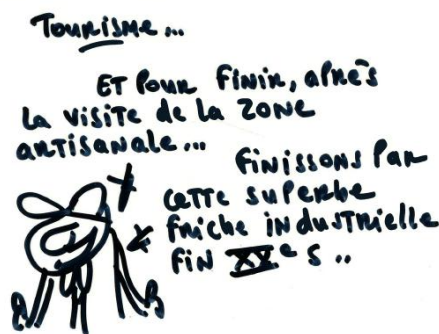 Tourisme...
ET Pour finir, après
la visite de la zone
artisanale...
finissons par
cette superbe
friche industrielle
fin XXe s..